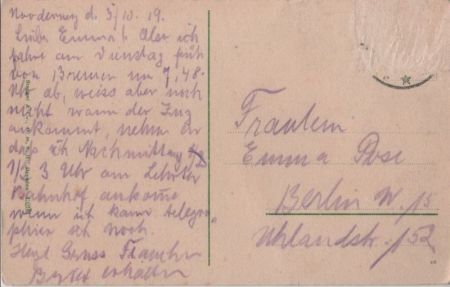 Norderney d. 3/10. 19.
Liebe Emma! Also ich
fahre am Dienstag früh
von Bremen um 7.48
Uhr ab, weiss aber noch
nicht wann der Zug
ankommt, nehme er
dass ich Nachmittag
1/2 3 Uhr am Lehrter
Bahnhof ankome
wenn ich kann telegra-
phier ich noch.
Herzl Gruss
Fräulein
Emma Pose
Berlin W. 15
Uhlandstr. 152